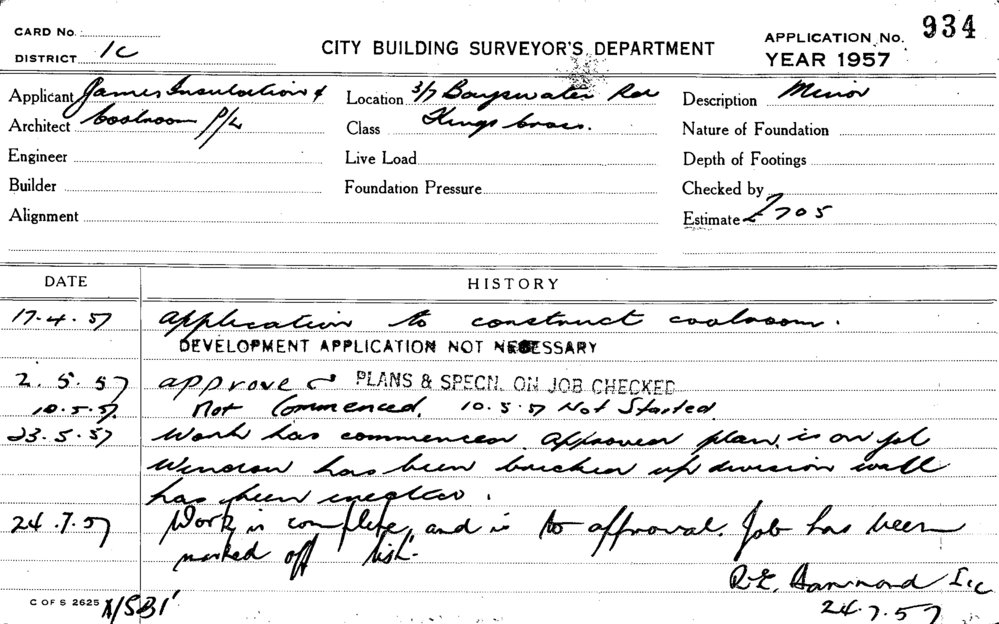 CARD No.
934
CITY BUILDING SURVEYOR'S DEPARTMENT
APPLICATION No.
DISTRICT 1c
YEAR 1957
Applicant James Insulation &
Location 3/7 Bayswater Rd
Description Minor
Architect Coolroom P/L
Class Kings Cross.
Nature of Foundation
Engineer
Live Load
Depth of Footings
Builder
Foundation Pressure
Checked by
Alignment
Estimate £705
DATE
HISTORY
17.4.57 Application to construct coolroom.
DEVELOPMENT APPLICATION NOT NECESSARY
2.5.57 approved PLANS & SPECN. ON JOB CHECKED
10.5.57. Not Commenced. 10.5.57 Not Started.
23.5.57 Work has commenced. approved plan is on job
Window has been bricked up division wall
has been erected.
24.7.57 Work is complete, and is to approval. Job has been
marked off list.
R.E. Hammond
24.7.57
C OF S 2625